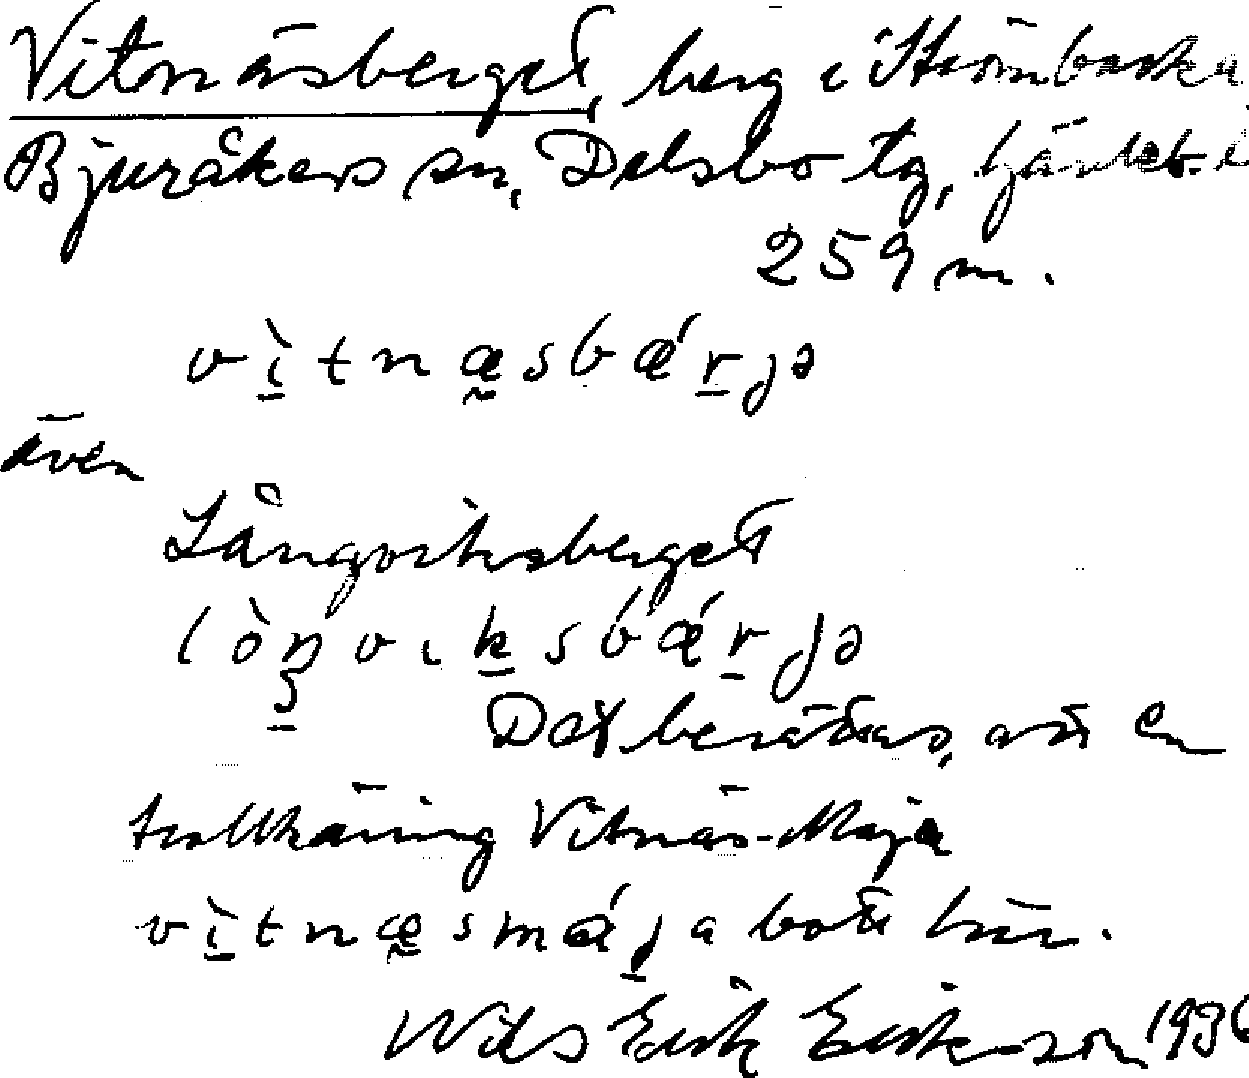 Vitnäsberget, berg i Strömbacka
Bjuråkers sn, Delsbo tg, Gävleb. l
259 m.
vìtnæsbǽrjə
även
Långviksberget
lòŋviksbǽrjə
Det berättas, att en
trollkäring Vitnäs-Maja
vìtnæsmájа bott här.
Nils Erik Eriksson 1936